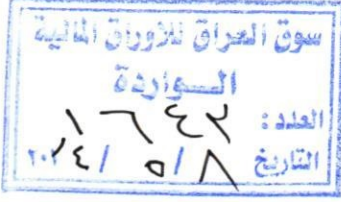 سوق العراق للاوراق المالية
الـــواردة
العدد: ١٦٤٣
التاريخ ٨ / ٥ / ٢٠٢٤